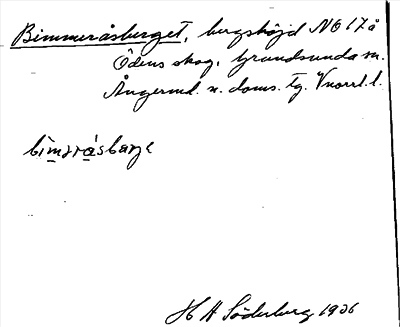 Bimmeråsberget, bergshöjd NO 17 å
Ödens skog, Grundsunda sn.
Ångerml. n. doms. tg. Vnorrl. l.
biməråsbarjə
H A Söderberg 1936